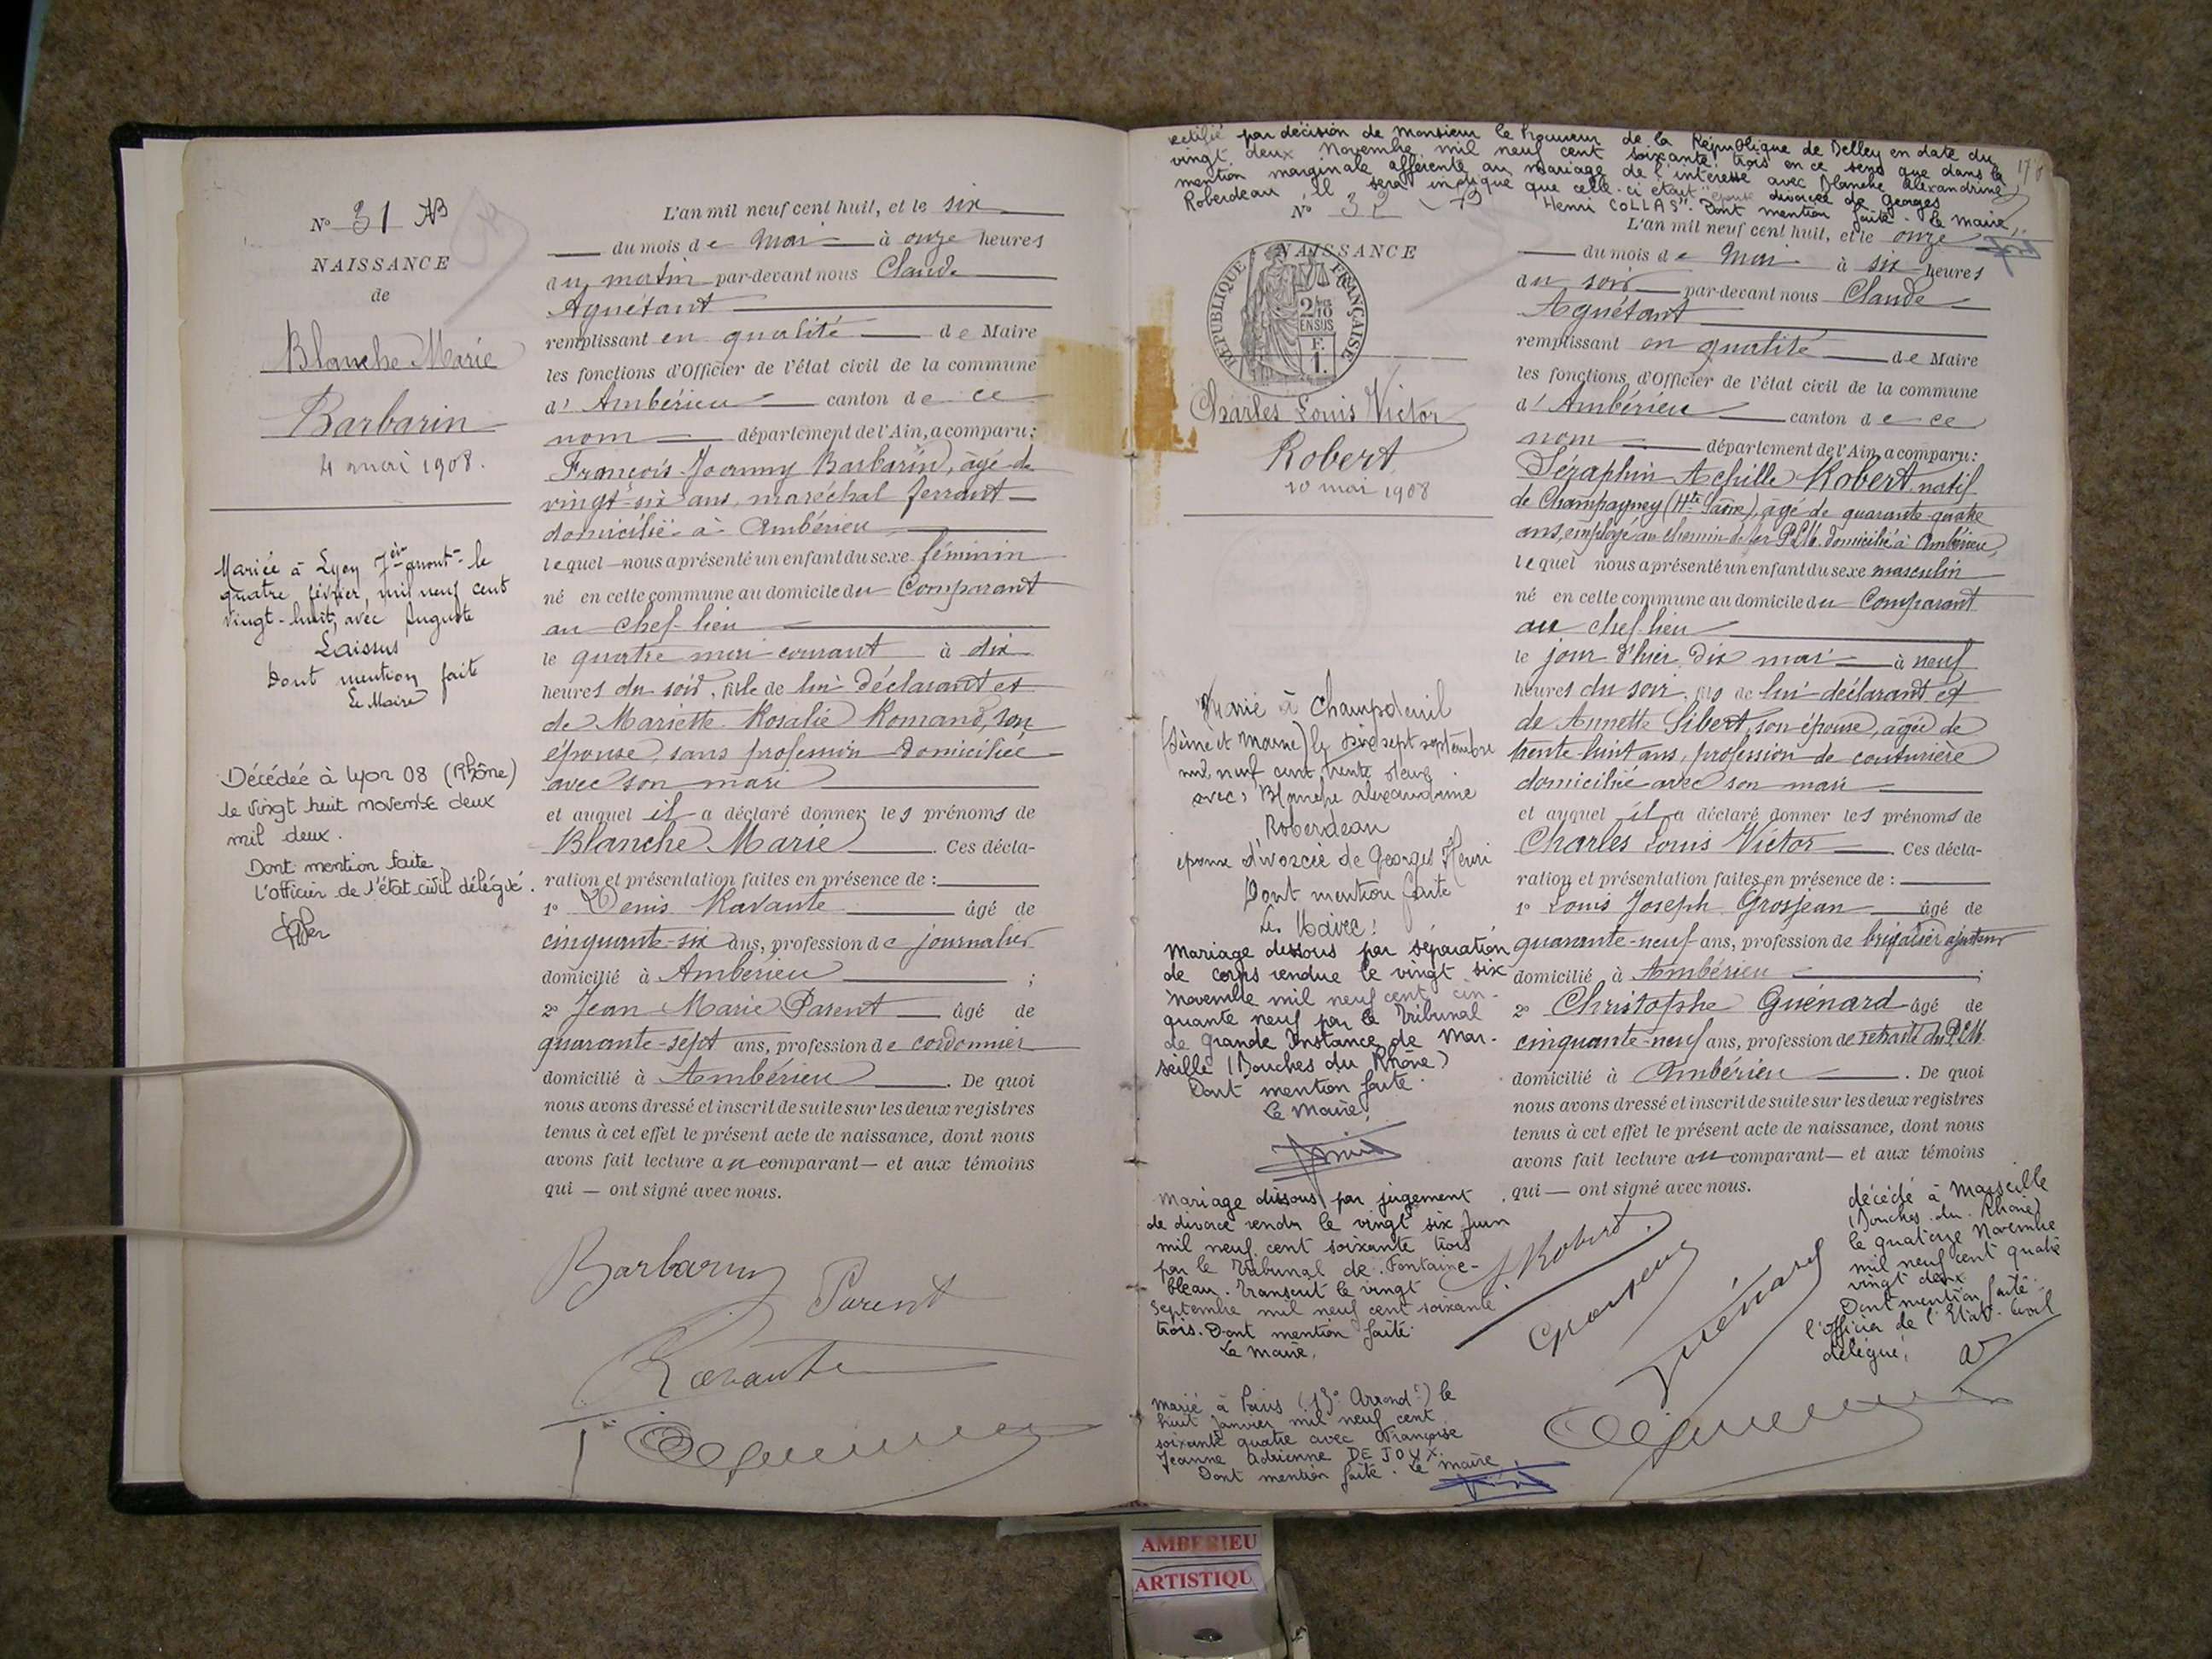 N° 31 AB
NAISSANCE
de
Blanche Marie
Barbarin
4 mai 1908.
Mariée à Lyon 7ème arront le
quatre février, mil neuf cent
vingt-huit, avec Auguste
Laissus
Dont mention faite
Le Maire
Décédée à Lyon 08 (Rhône)
le vingt huit novembre deux
mil deux.
Dont mention faite
l'officier de l'état civil délégué.
L'an mil neuf cent huit, et le six
du mois de mai à onze heures
du matin par-devant nous Claude
Aguétant
remplissant en qualité de Maire
les fonctions d'Officier de l'état civil de la commune
d'Ambérieu canton de ce
nom département de l'Ain, a comparu:
François Joanny Barbarin, âgé de
vingt-six ans, maréchal ferrant
domicilié à Ambérieu
lequel nous a présenté un enfant du sexe féminin
né en cette commune au domicile du Comparant
au chef-lieu
le quatre mai courant à dix
heures du soir, fille de lui déclarant et
de Mariette Rosalie Romand, son
épouse, sans profession domiciliée
avec son mari
et auquel il a déclaré donner les prénoms de
Blanche Marie. Ces décla-
ration et présentation faites en présence de :
1° Denis Ravante âgé de
cinquante-six ans, profession de journalier
domicilié à Ambérieu ;
2° Jean Marie Parent âgé de
quarante-sept ans, profession de cordonnier
domicilié à Ambérieu. De quoi
nous avons dressé et inscrit de suite sur les deux registres
tenus à cet effet le présent acte de naissance, dont nous
avons fait lecture au comparant et aux témoins
qui — ont signé avec nous.
Barbarin
Parent
Ravante
rectifié par décision de Monsieur le Procureur de la République de Belley en date du
vingt deux Novembre mil neuf cent soixante trois en ce sens que dans la
mention marginale afférente au mariage de l'intéressé avec Blanche Alexandrine
Roberdeau, il sera indiqué que celle-ci était "épouse divorcée de Georges
Henri COLLAS". Dont mention faite. Le maire,
178
N° 32 AB
NAISSANCE
RÉPUBLIQUE FRANÇAISE
2/10
EN SUS
F.
1.
Charles Louis Victor
Robert
10 mai 1908
Marié à Champdeuil
(Seine et Marne) le sept septembre
mil neuf cent trente neuf
avec Blanche Alexandrine
Roberdeau
épouse divorcée de Georges Henri
Dont mention faite
Le Maire:
Mariage dessous par séparation
de corps rendue le vingt six
novembre mil neuf cent cin-
quante neuf par le Tribunal
de Grande Instance de Mar-
seille (Bouches du Rhône)
Dont mention faite.
Le Maire,
Mariage dissous par jugement
de divorce rendu le vingt six Juin
mil neuf cent soixante trois
par le Tribunal de Fontaine-
bleau. Transcrit le vingt
Septembre mil neuf cent soixante
trois. Dont mention faite.
Le Maire,
Marié à Paris (13° Arrondt) le
huit Janvier mil neuf cent
soixante quatre avec Françoise
Jeanne Adrienne DE JOUX.
Dont mention faite. Le maire
L'an mil neuf cent huit, et le onze
du mois de mai à six heures
du soir par-devant nous Claude
Aguétant
remplissant en qualité de Maire
les fonctions d'Officier de l'état civil de la commune
d'Ambérieu canton de ce
nom département de l'Ain, a comparu:
Séraphin Achille Robert, natif
de Champagney (Hte Saône), âgé de quarante-quatre
ans, employé au chemin de fer P.L.M. domicilié à Ambérieu,
lequel nous a présenté un enfant du sexe masculin
né en cette commune au domicile du Comparant
au chef-lieu
le jour d'hier, dix mai à neuf
heures du soir, fils de lui déclarant et
de Annette Sibert, son épouse, âgée de
trente-huit ans, profession de couturière
domiciliée avec son mari
et auquel il a déclaré donner les prénoms de
Charles Louis Victor. Ces décla-
ration et présentation faites en présence de :
1° Louis Joseph Grosjean âgé de
quarante-neuf ans, profession de brigadier ajusteur
domicilié à Ambérieu ;
2° Christophe Guénard âgé de
cinquante-neuf ans, profession de retraité du P.L.M.
domicilié à Ambérieu. De quoi
nous avons dressé et inscrit de suite sur les deux registres
tenus à cet effet le présent acte de naissance, dont nous
avons fait lecture au comparant et aux témoins
qui — ont signé avec nous.
Robert
Grosjean
Guénard
décédé à Marseille
(Bouches du Rhône)
le quatorze Novembre
mil neuf cent quatre
vingt deux
Dont mention faite.
l'officier de l'Etat Civil
délégué,
AMBERIEU
ARTISTIQU